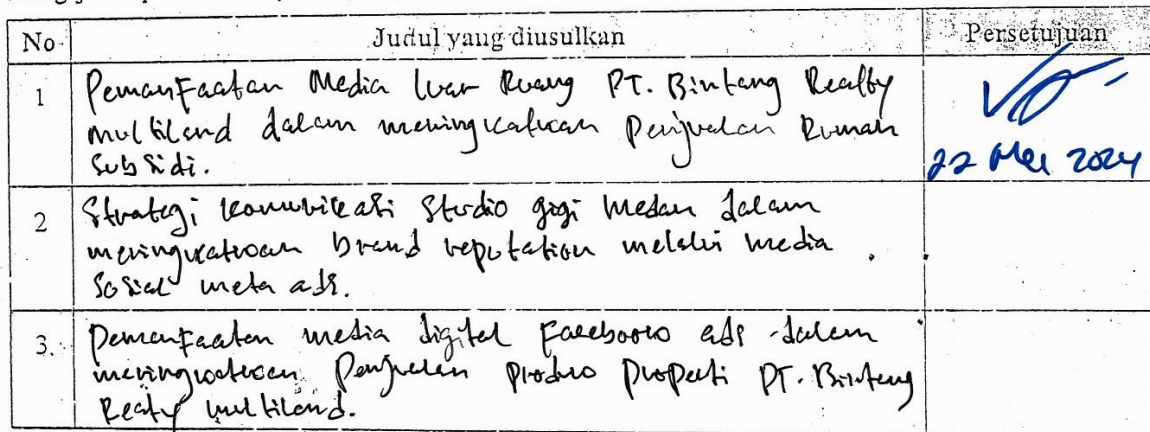 No Judul yang diusulkan Persetujuan
1 Pemanfaatan Media luar Ruang PT. Bintang Realty
multiland dalam meningkatkan Penjualan Rumah
Subsidi.
22 Mei 2024
2 Strategi komunikasi Studio gigi medan dalam
meningkatkan brand reputation melalui media
Sosial meta ads.
3. Pemanfaatan media digital Facebook ads dalam
meningkatkan Penjualan Produk Properti PT. Bintang
Realty multiland.